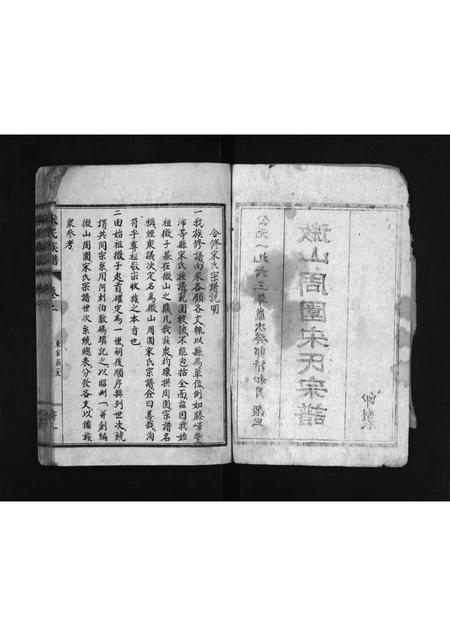 公元一九六三年歲次癸卯清和月 穀旦
微山周圍宋氏宗譜
印製
合修宋氏宗譜說明
一我族修譜向來各顧各支親以縣為單位例如滕嶧豐
沛等縣宋氏族譜範圍較狹不能包括全面茲因我始
祖微子墓在微山之巔凡我族眾均環拱周圍宗譜名
稱經眾議決定名為微山周圍宋氏宗譜僉曰善哉洵
符乎尊祖敬宗收族之本旨也
二由始祖微子起首確定為一世祠後順序排列世次統
謂共同宗系用阿剌伯數碼填記之以昭劃一並創編
微山周圍宋氏宗譜世次系統總表分發各支以備族
眾參考
宋氏族譜 卷之